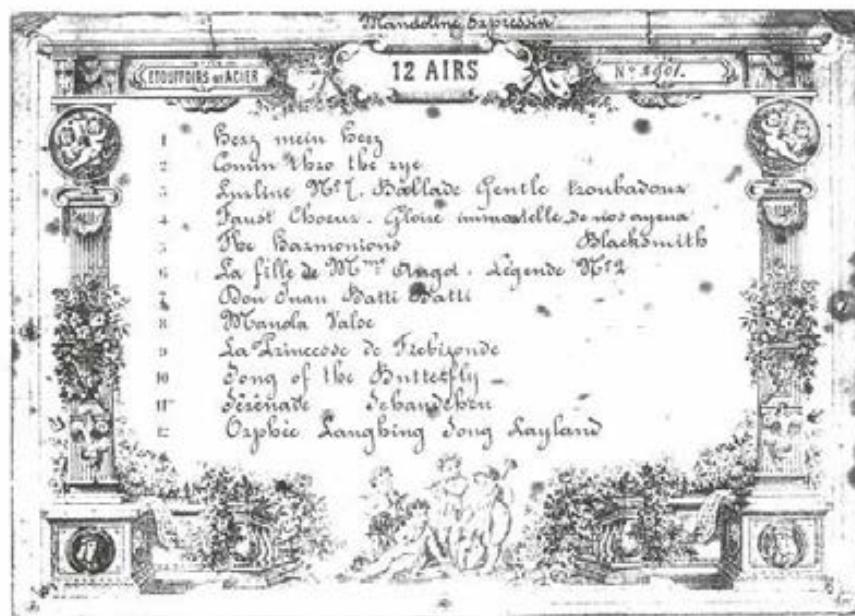 Mandoline Expressiv
ETOUFFOIRS EN ACIER
12 AIRS
No 3901.
1 Herz mein Herz
2 Comin thro the rye
3 Lurline No 7. Ballade Gentle troubadour
4 Faust Choeur. Gloire immortelle de nos ayeux
5 The Harmonions Blacksmith
6 La fille de Mme Angot. Légende No 2
7 Don Juan Batti Batti
8 Manola Valse
9 La Princesse de Trebizonde
10 Song of the Butterfly
11 Sérénade
12 Orphée Laughing Song